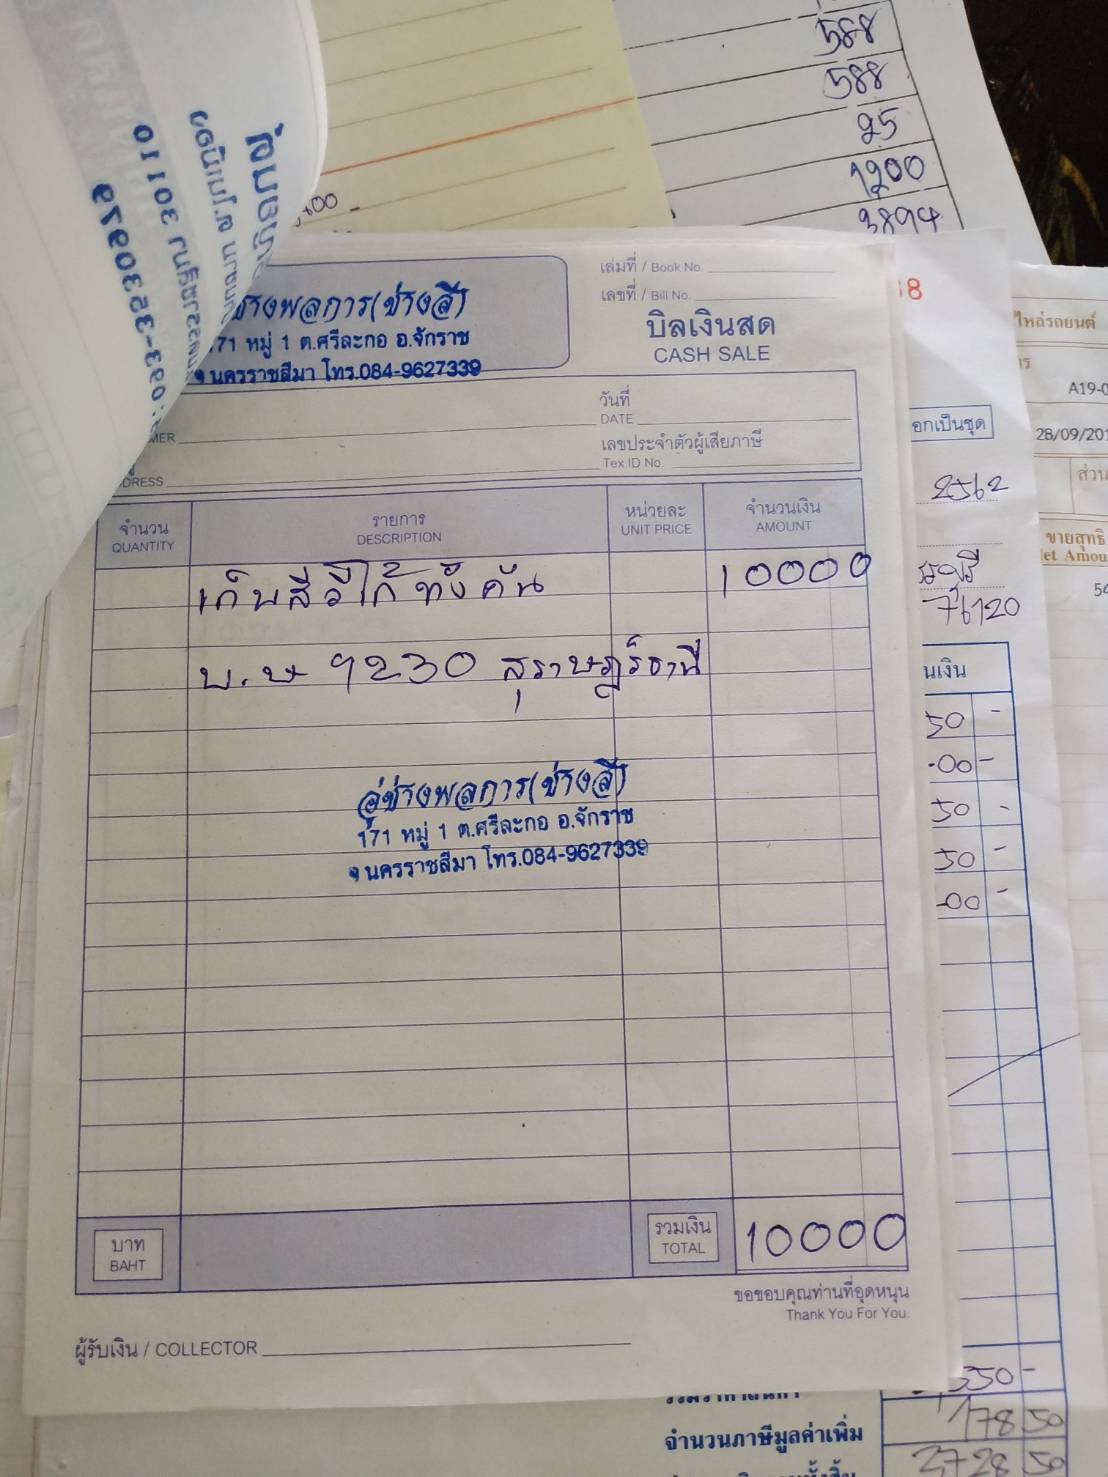 588
588
25
1200
3894
400 -
093-3530979
เล่มที่ / Book No.
เลขที่ / Bill No.
บิลเงินสด
CASH SALE
ช่างพลการ(ช่างลี)
171 หมู่ 1 ต.ศรีละกอ อ.จักราช
จ.นครราชสีมา โทร.084-9627339
วันที่
DATE
เลขประจำตัวผู้เสียภาษี
Tex ID No.
MER
DRESS
จำนวน
QUANTITY
รายการ
DESCRIPTION
หน่วยละ
UNIT PRICE
จำนวนเงิน
AMOUNT
เก็บสีวีโก้ ทั้งคัน 10000
บ.ษ 9230 สุราษฎร์ธานี
อู่ช่างพลการ(ช่างลี)
171 หมู่ 1 ต.ศรีละกอ อ.จักราช
จ.นครราชสีมา โทร.084-9627339
บาท
BAHT
รวมเงิน
TOTAL
10000
ขอขอบคุณท่านที่อุดหนุน
Thank You For You.
ผู้รับเงิน / COLLECTOR
18
ไหล่รถยนต์
A19-0
อกเป็นชุด
28/09/201
2562
ส่วน
ขายสุทธิ
et Amou
54
76120
นเงิน
50 -
00 -
50 -
50 -
00 -
550 -
จำนวนภาษีมูลค่าเพิ่ม
178 50
2728 50